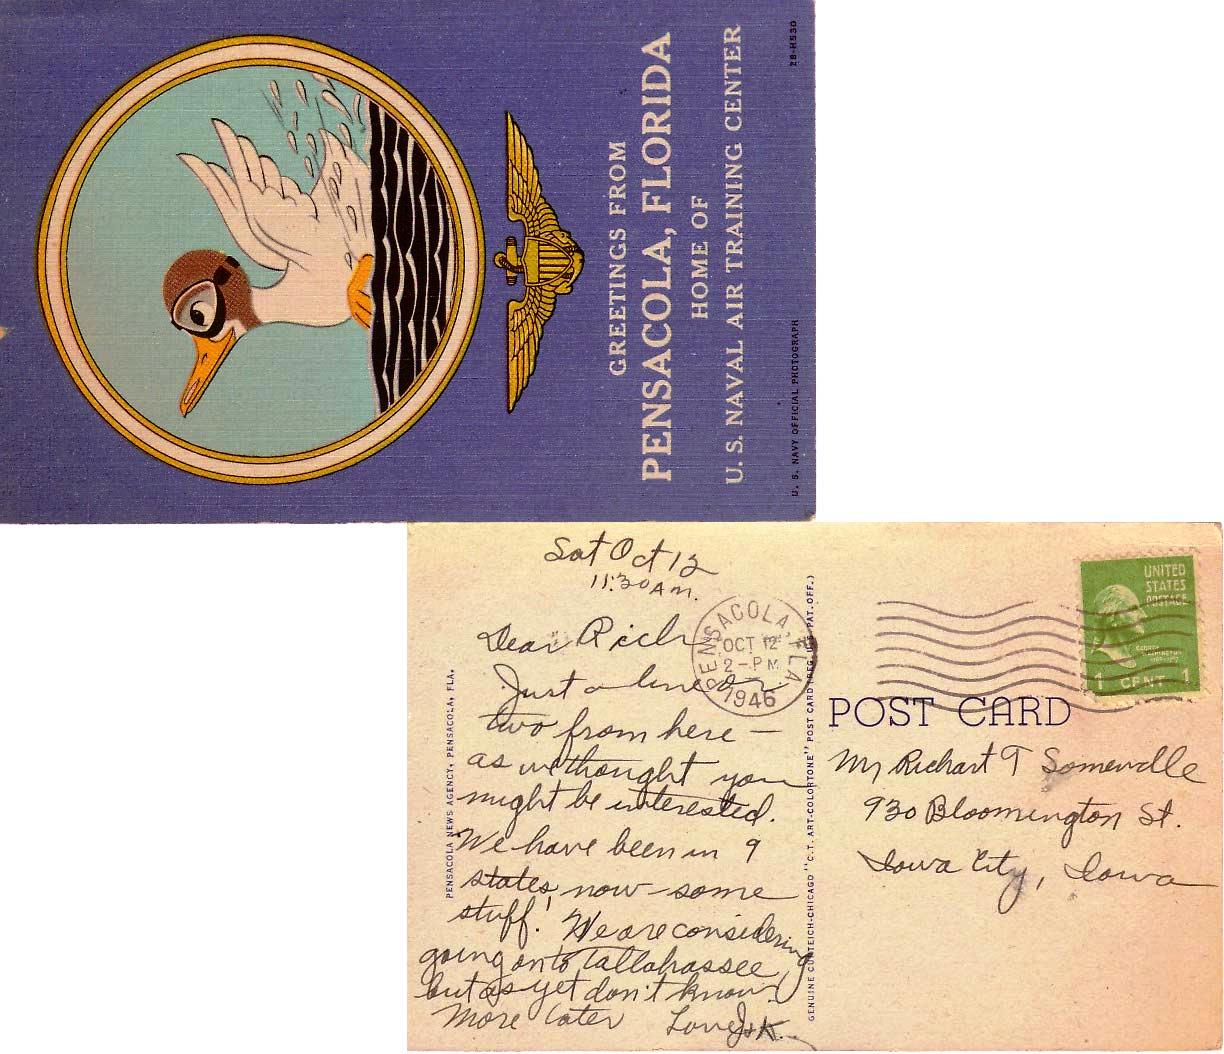 GREETINGS FROM
PENSACOLA, FLORIDA
HOME OF
U. S. NAVAL AIR TRAINING CENTER
U. S. NAVY OFFICIAL PHOTOGRAPH
2B-H530
Sat Oct 12
11:30 A.M.
Dear Rich
Just a line or
two from here —
as we thought you
might be interested.
We have been in 9
states, now – some
stuff! We are considering
going on to Tallahassee,
but as yet don't know.
More later Love J + K.
PENSACOLA NEWS AGENCY, PENSACOLA, FLA.
GENUINE CURTEICH-CHICAGO "C.T. ART-COLORTONE" POST CARD (REG. U.S. PAT. OFF.)
PENSACOLA, FLA
OCT 12
2 - PM
1946
UNITED
STATES
POSTAGE
GEORGE
WASHINGTON
1 CENT 1
POST CARD
Mr Richart T Somerville
930 Bloomington St.
Iowa City, Iowa